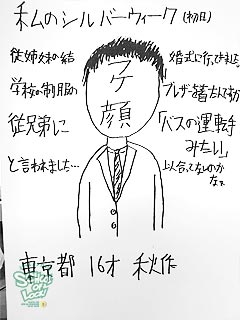 私のシルバーウィーク(初日)
従姉妹の結婚式に行ってきました
学校の制服のブレザー着たんですが
従兄弟に「バスの運転手
みたい」
と言われました… 似合ってないのか
なぁ
顔
東京都 16才 秋作
SCHOOL OF LOCK!